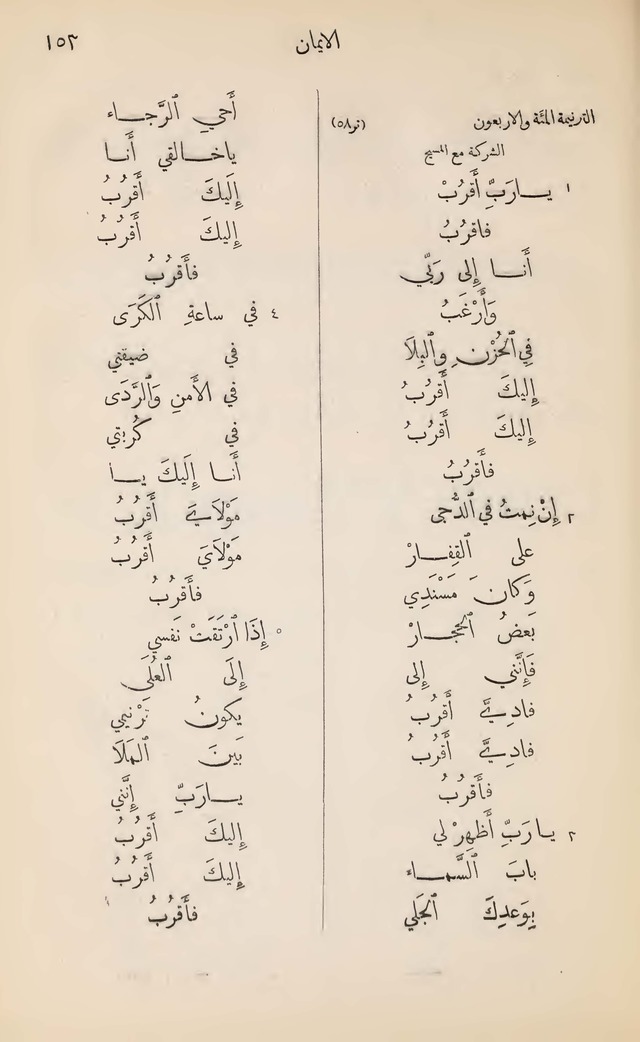 ١٥٣
الايمان
الترنيمة المئَة والاربعون (تر٥٨)
الشركة مع المسيح
١ يـا رَبِّ أَقْرُبْ
فاقرُبُ
أَنـا إِلى رَبّي
وَأَرْغَبُ
في ٱلْحُزْنِ وٱلْبِلَا
إِليكَ أَقرُبُ
إِليكَ أَقرُبُ
فأَقرُبُ
٢ إِنْ نِمتُ في ٱلدُّجى
على ٱلقِفارْ
وَكانَ مَسْنَدِي
بَعضُ ٱلحِجارْ
فَإِنَّني إِلى
فاديَّ أَقرُبُ
فاديَّ أَقرُبُ
فأَقرُبُ
٣ يا رَبِّ أَظهِرْ لي
بابَ ٱلسَّماء
بِوَعدِكَ ٱلجَلي
أَحيِ ٱلرَّجاء
ياخالقي أَنا
إِلَيكَ أَقرُبُ
إِليكَ أَقرُبُ
فأَقرُبُ
٤ في ساعةِ ٱلكَرَى
في ضيقتي
في الأَمنِ وَٱلرَّدَى
في كُربَتي
أَنا إِلَيكَ يا
مَوْلَايَ أَقرُبُ
مَوْلَايَ أَقرُبُ
فأَقرُبُ
٥ إِذَا ٱرْتَقَتْ نَفسي
إِلَى ٱلعُلَى
يكونُ تَرْنيمي
بَينَ ٱلمَلَا
يا رَبِّ إِنَّني
إِليكَ أَقرُبُ
إِليكَ أَقرُبُ
فأَقرُبُ